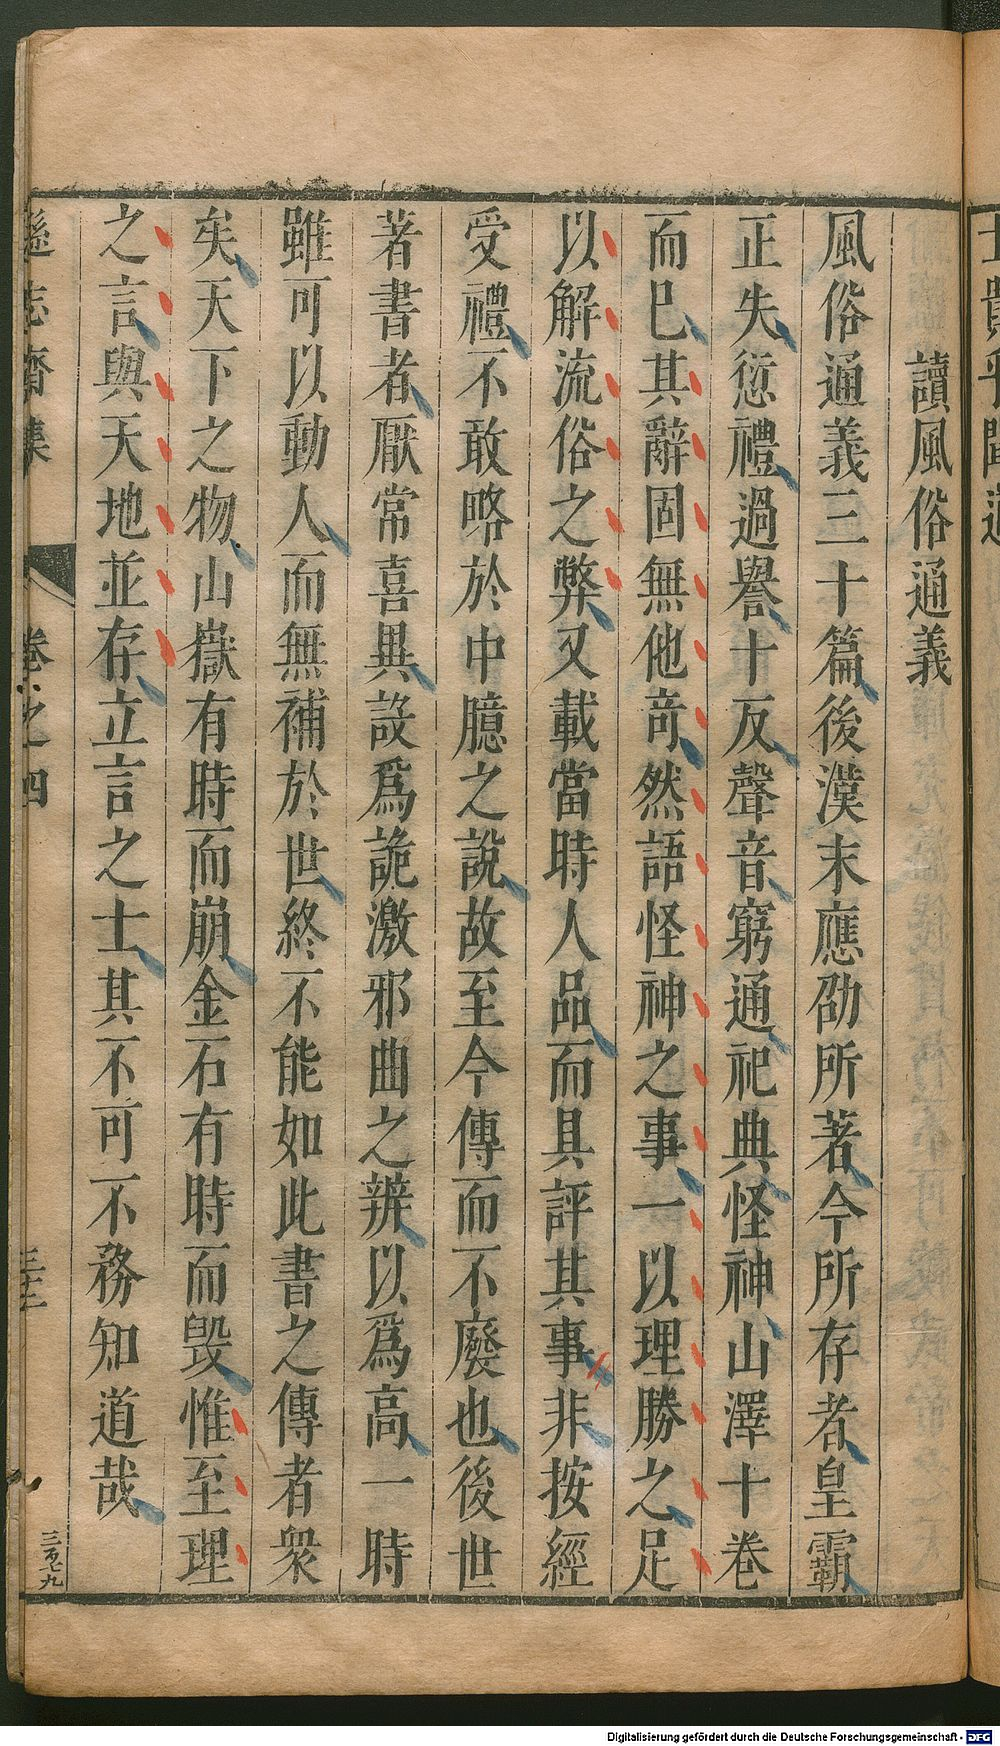 讀風俗通義
風俗通義三十篇後漢末應劭所著今所存者皇霸
正失愆禮過譽十反聲音窮通祀典怪神山澤十卷
而已其辭固無他奇然語怪神之事一以理勝之足
以解流俗之弊又載當時人品而具評其事非按經
受禮不敢略於中臆之說故至今傳而不廢也後世
著書者厭常喜異設爲詭激邪曲之辨以爲高一時
雖可以動人而無補於世終不能如此書之傳者衆
矣天下之物山嶽有時而崩金石有時而毀惟至理
之言與天地並存立言之士其不可不務知道哉
遜志齋集
卷之四
三十二
三百七九
Digitalisierung gefördert durch die Deutsche Forschungsgemeinschaft - DFG